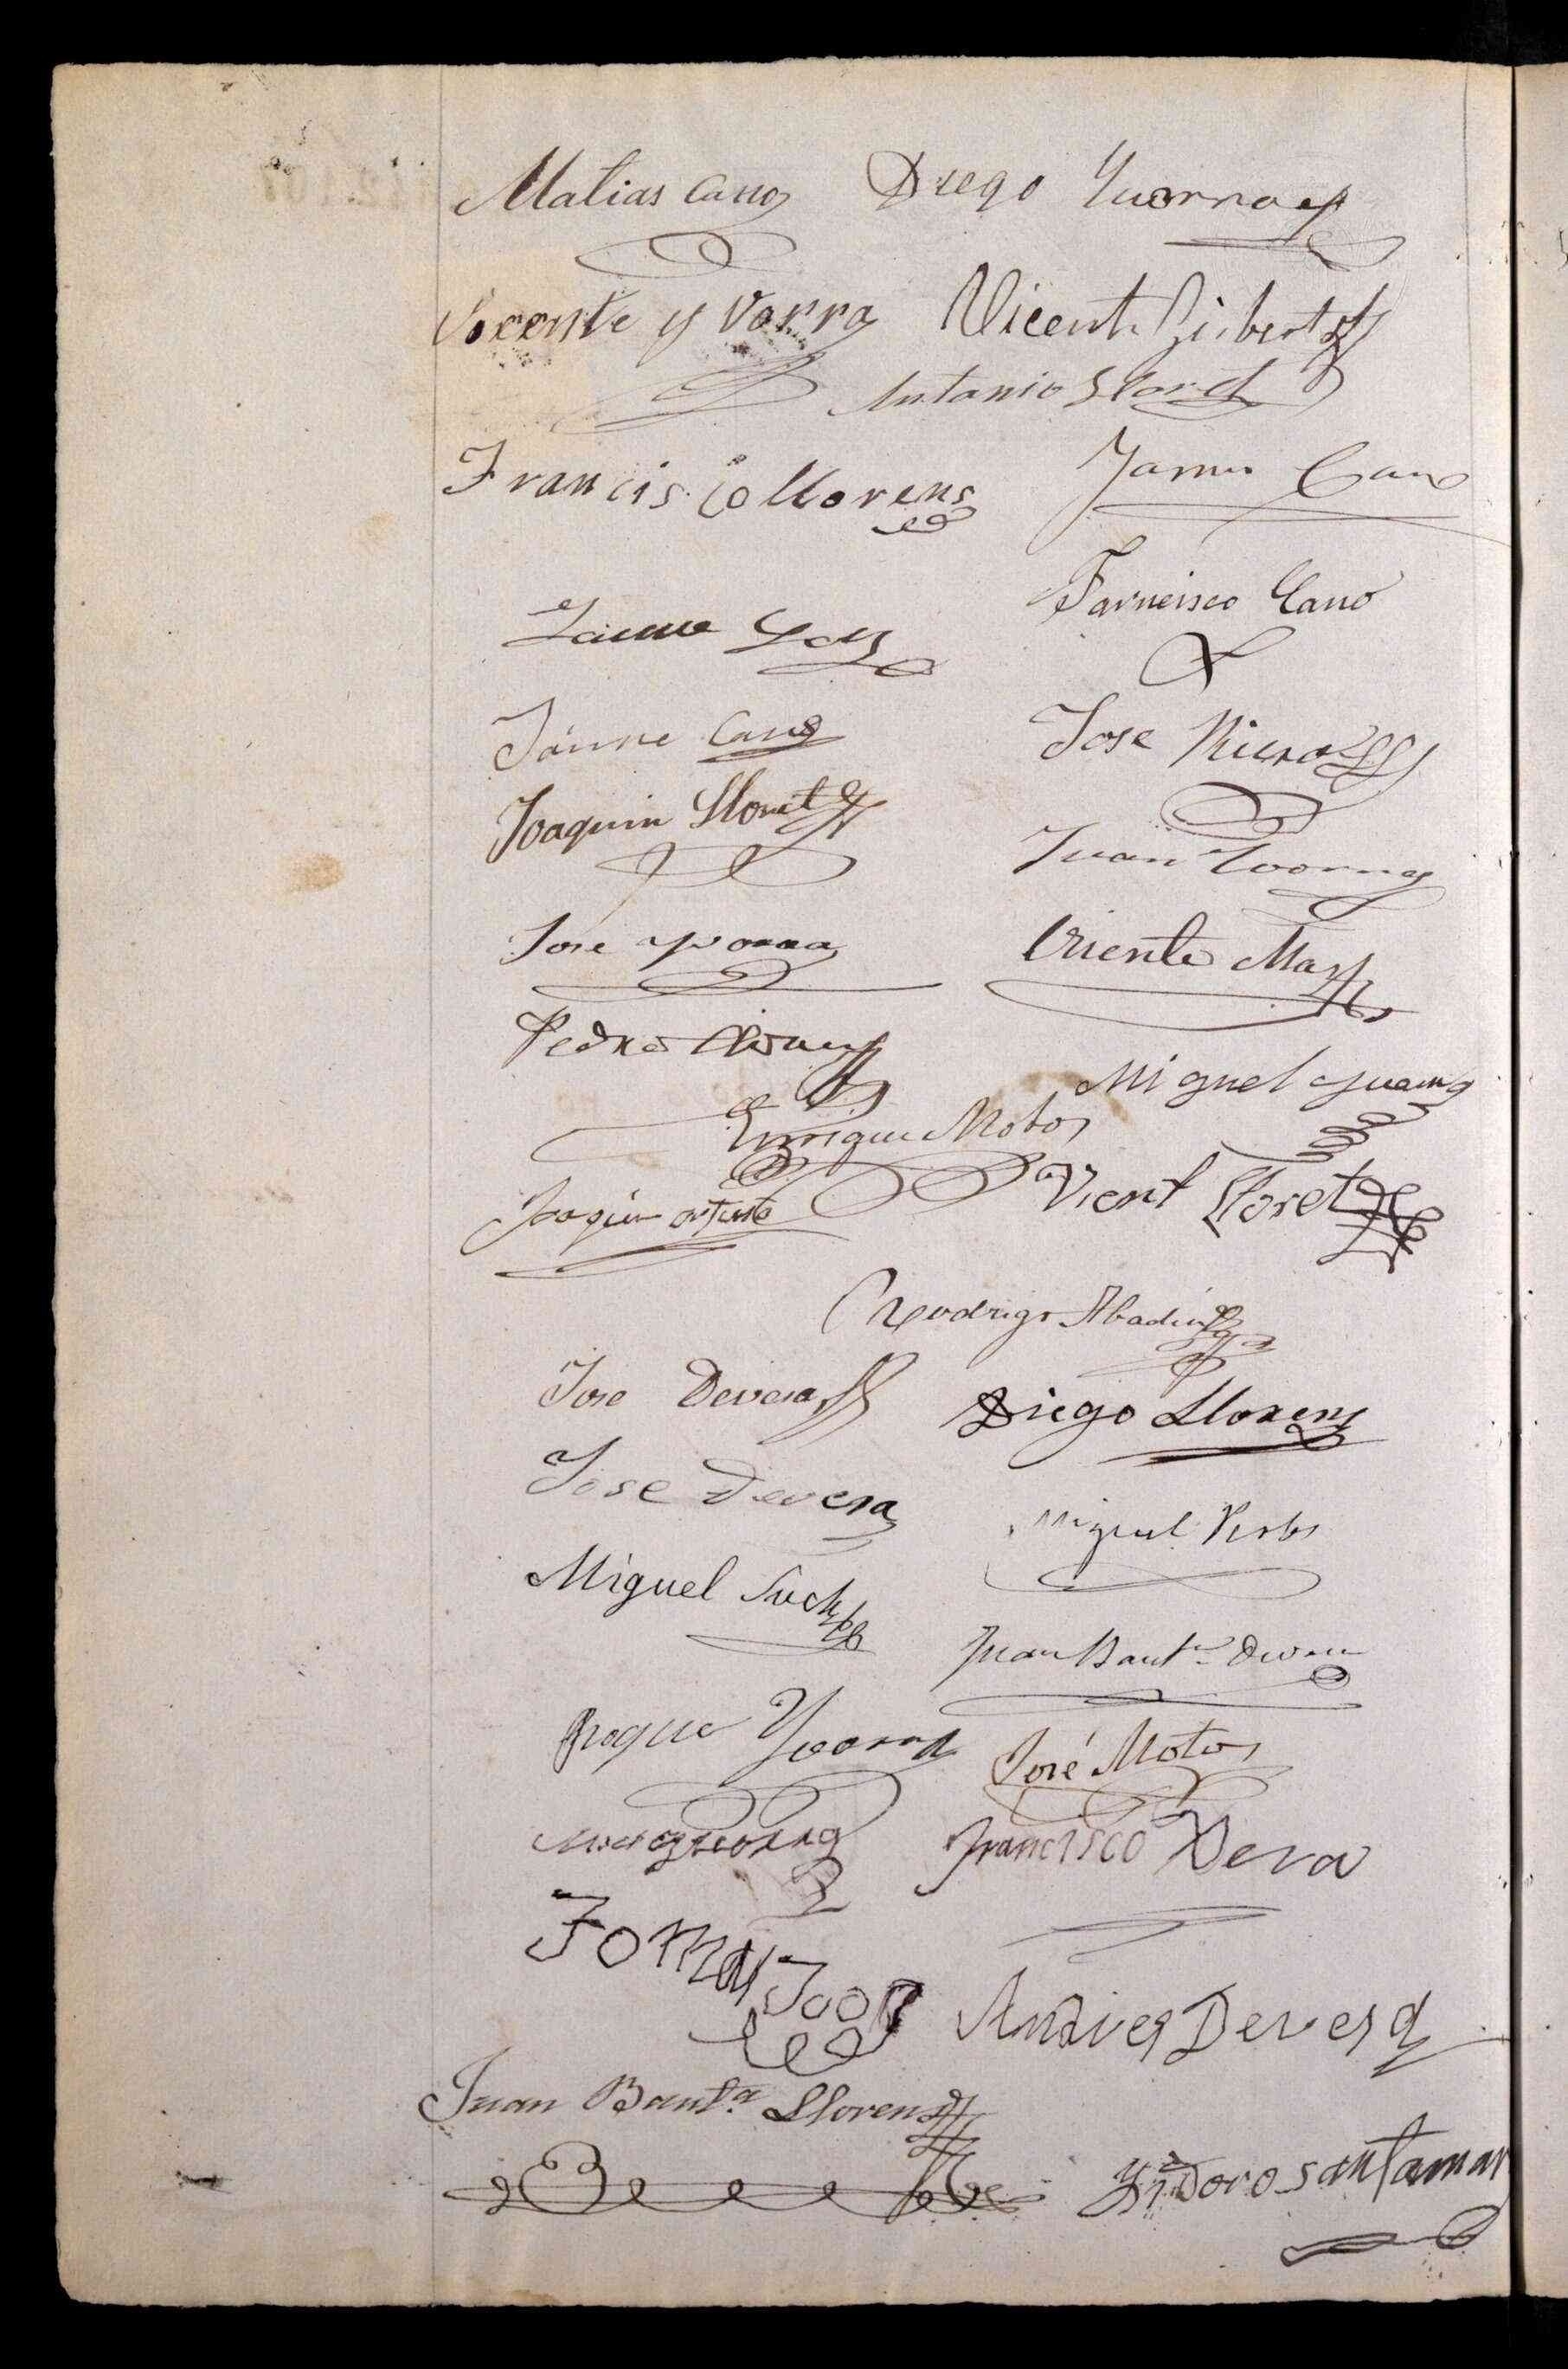 Matias Cano Diego Yvorra
Vicente yvorra Vicente Gisbert
Antonio Lloret
Francisco Llorens Jaime Cano
Farncisco Cano
Jaime
Jaime Cano Jose
Joaquin Lloret Juan Yvorra
Jose yvorra Vicente Mayr
Pedro
Miguel yvorra
Enrrique Motos
Joaquin Vicent Lloret
Rodrigo Abadia
Jose Devesa Diego Llorens
Jose Devesa Miguel
Miguel Such
Juan Baut.ª
Roque Yvorra José Motos
yvorra Francisco Deva
Andres Devesa
Juan Baut.ª Llorens
Ysidoro santamar